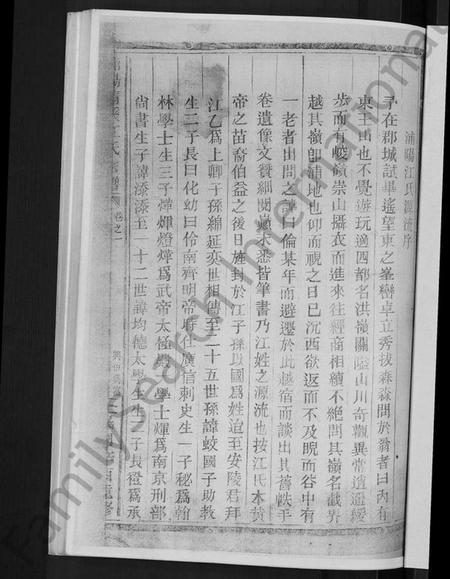 浦陽江氏源流序
予在郡城試畢遙望東之峯巒卓立秀拔森森問於翁者曰內有
東王山也不覺遊玩適四都名洪嶺關隘山川奇觀異常逍遥緩
步而有峻嶺崇山攝衣而進來往經商相續不絕問其嶺名截界
越其嶺卽浦地也仰而視之日已沉西欲返而不及睨而谷中有
一老者出問之謙曰倫某年而避遷於此越宿而談出其舊帙手
卷遺像文贊細閱巔末悉皆筆書乃江姓之源流也按江氏本黃
帝之苗裔伯益之後日旌封於江子孫以國爲姓迨至安陵君拜
江乙爲上卿子孫綿延奕世相傳至二十五世孫諱蛟國子助教
生二子長曰化幼曰伶南齊明帝時仕廣信刺史生一子秘爲翰
林學士生三子燁煇燈燁爲武帝太極殿學士煇爲南京刑部
尙書生子諱漆漆至一十二世諱均德太學生生一子長橙爲承
江氏宗譜 卷之一
FamilySearch International